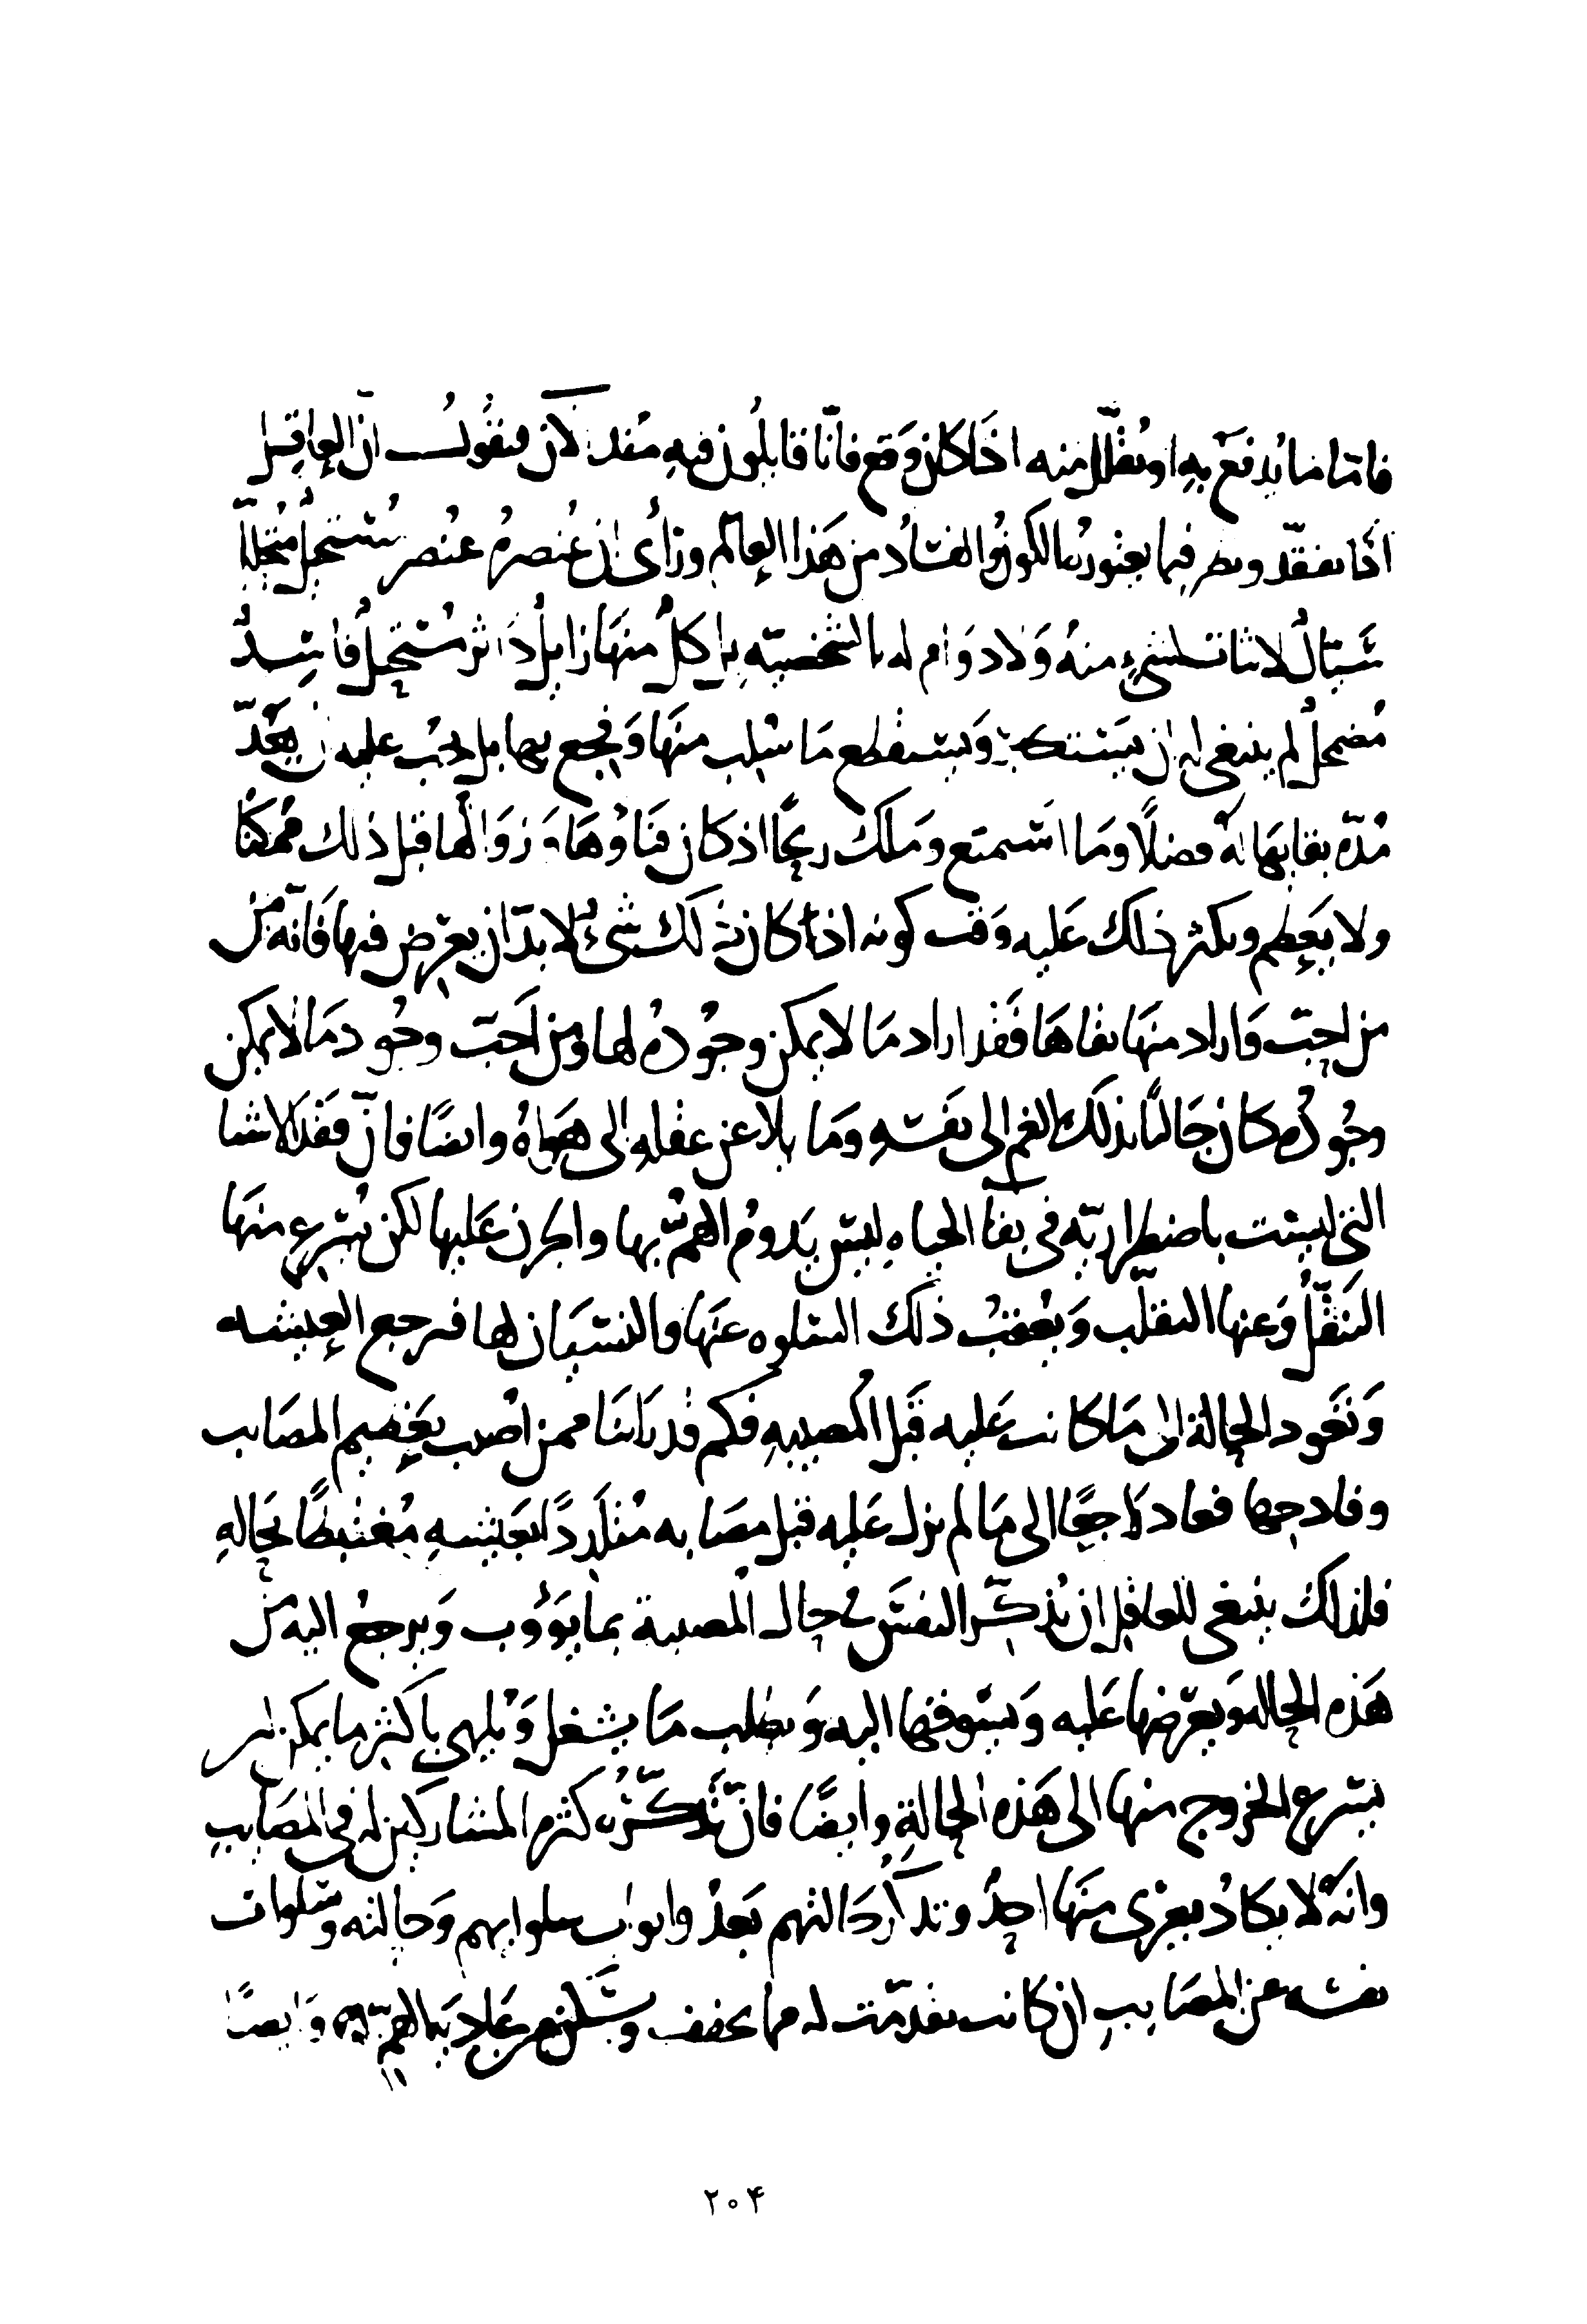 فاما ما يدفع به او يقلل منه اذا كان وقع فانا قايلون فيه منذ الآن فنقول ان العاقل
اذا تفقد ونظر فيما يعتوره الكون والفساد من هذا العالم وراى ان عنصره عنصر مستحيل منحل
سيال لا ثبات لشيء منه ولا دوام له بالشخصيه بل كل منها زايل داثر مستحيل فاسد
مضمحل لم ينبغي له ان يستكثر ويستفظع ما سلب منها وفجع بها بل يجب عليه ان يعد
مدة بقايها له فضلا وما استمتع وملك ربحا اذ كان فناوها وزوالها قبل ذلك ممكنا
ولا يعظم ويكثر ذلك عليه وقت كونه اذا كان ذلك شيء لا بد ان يعرض فيها فانه من
من احب واراد منها بقاها فقد اراد ما لا يمكن وجوده لها ومن احب وجود ما لا يمكن
وجوده كان جالبا بذلك الغم الى نفسه وما يلا عن عقله الى هواه وايضا فان فقد الاشيا
التي ليست باضطراريه في بقا الحياه ليس يدوم الهم بها والحزن عليها لكن يسرع منها
التنقل وعنها التقلب ويعقب ذلك السلوه عنها والنسيان لها فيرجع العيشه
وتعود الحالة الى ما كانت عليه قبل المصيبه فكم قد راينا ممن اصيب بعظيم المصايب
وفادحها فعاد راجعا الى ما لم يزل عليه قبل مصابه متلذذا بعيشه مغتبطا بحاله
فلذلك ينبغي للعاقل ان يذكر النفس في حال المصيبة بما يؤوب ويرجع اليه من
هذه الحاله ويعرضها عليه ويسوقها اليه ويطلب ما يشغل ويلهي باكثر ما يمكن
يسرع الخروج منها الى هذه الحالة وايضا فان تذكره كثره المشاركين له في المصايب
وانه لا يكاد يعرى منها احد وتذكره حالتهم بعد وابواب سلواتهم وحالته وسلوات
نفسه عن المصايب ان كانت تقدمت له مما يخفف ويسكن من عاديه الهم وايضا
۲۰۴